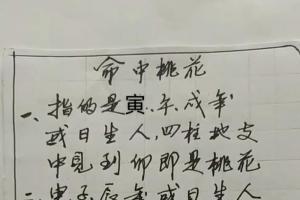 命中桃花
一、指的是寅、午、戌年
或日生人,四柱地支
中见到卯即是桃花
二、申子辰年或日生人